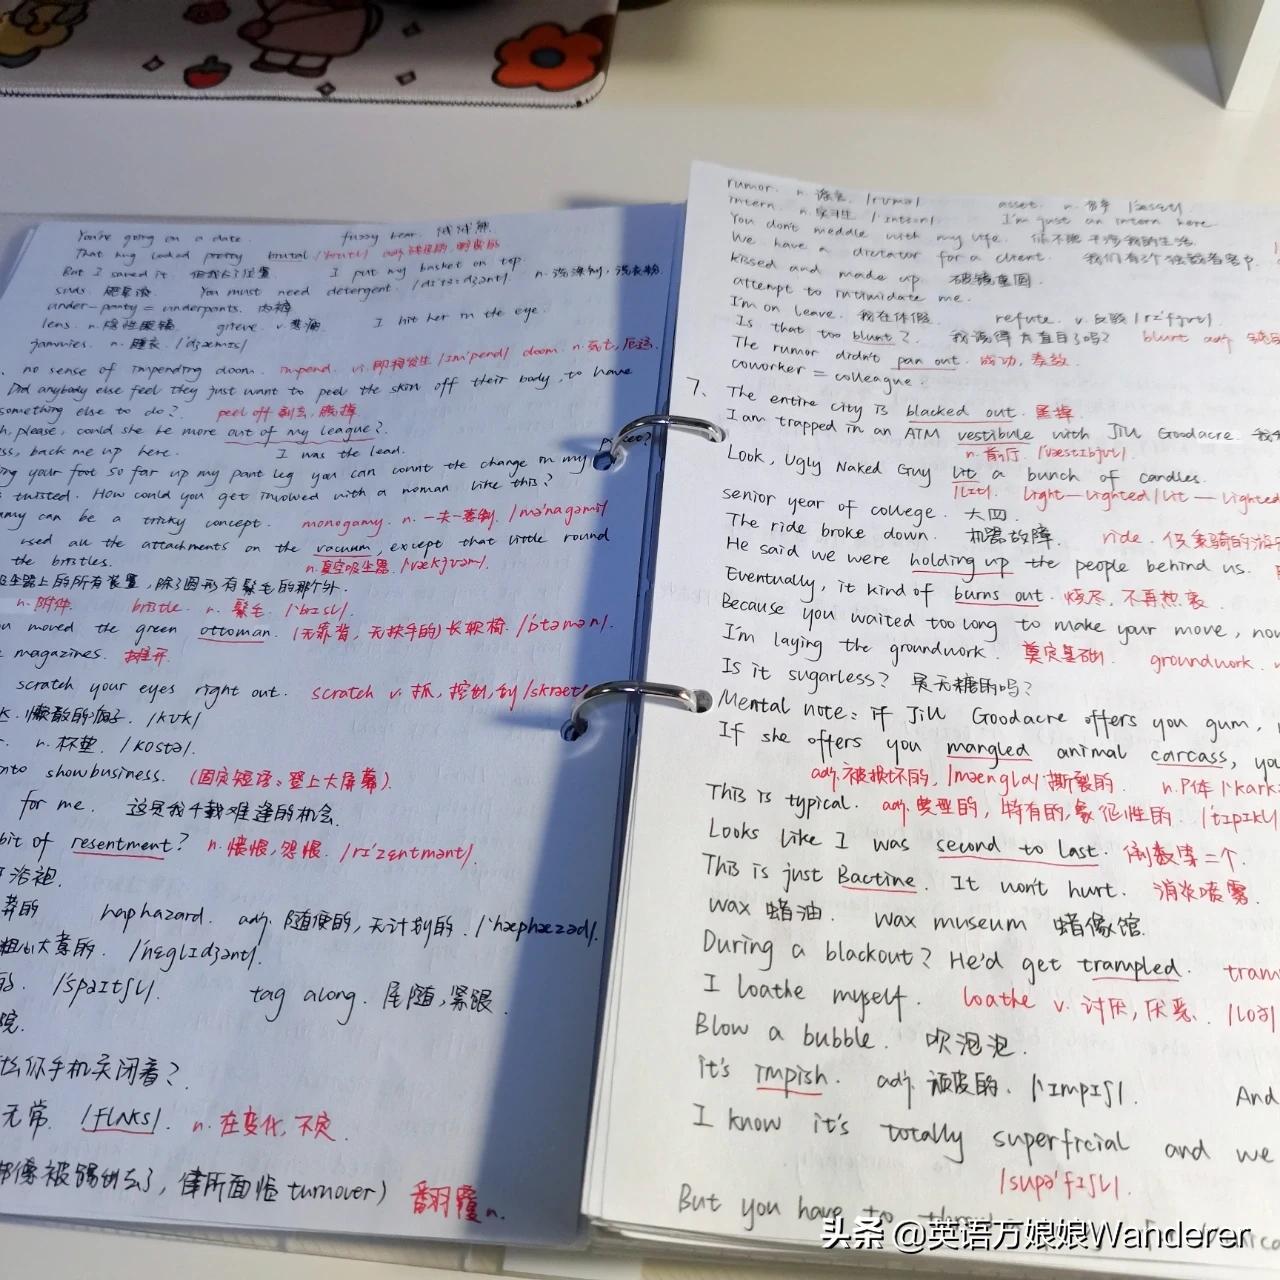 You're going on a date. fuzzy bear.
That guy looked pretty brutal /'brutl/ adj.
But I saved it. I put my basket on top.
suds. 肥皂液. You must need detergent. n. 洗涤剂, 洗衣粉
under-panty = underpants. 内裤
lens. n. grieve. v. 悲痛 I hit her in the eye.
jammies. n. 睡衣. /'dʒæmɪs/
no sense of impending doom. impend. vi. 即将发生 /ɪm'pend/ doom. n. 死亡, 厄运.
Did anybody else feel they just want to peel the skin off their body, to have
something else to do? peel off 剥去, 脱掉
please, could she be more out of my league?
back me up here. I was the lead.
ing your foot so far up my pant leg you can count the change in my
pocket?
twisted. How could you get involved with a woman like this?
can be a tricky concept. monogamy. n. 一夫一妻制. /mə'nɑgəmi/
used all the attachments on the vacuum, except that little round
the bristles. n. 真空吸尘器. /'vækjʊəm/.
尘器上的所有装置, 除了圆形有鬃毛的那个外.
n. 附件. bristle. n. 鬃毛. /'brɪsl/
moved the green ottoman. (无靠背, 无扶手的) 长软椅. /'ɒtəmən/.
magazines. 推开
scratch your eyes right out. scratch v. 抓, 挖出, 划 /skrætʃ
懒散的疯子. /kʊk/
n. 杯垫. /'kostə/.
onto showbusiness. (固定短语: 登上大屏幕).
for me. 这是我千载难逢的机会.
bit of resentment? n. 愤恨, 怨恨. /rɪ'zentmənt/.
浴袍.
莽的 haphazard. adj. 随便的, 无计划的. /'hæphæzəd/.
粗心大意的. /'neglɪdʒənt/.
/'spəɪtfl/. tag along. 尾随, 紧跟.
院.
么你手机关闭着?.
无常. /flʌks/. n. 在变化, 不定.
像被踢出去了, 律所面临 turnover) 翻覆 n.
rumor. n. 谣言. /'rumə/ asset. n. /'æset/.
intern. n. 实习生 /'ɪntɜn/ I'm just an intern here.
You don't meddle with my life. 你不要干涉我的生活.
We have a dictator for a client. 我们有个独裁者客户.
kissed and made up. 破镜重圆.
attempt to intimidate me.
I'm on leave. 我在休假. refute. v. 反驳 /rɪ'fjut/.
Is that too blunt? 我说得太直白了吗? blunt adj
The rumor didn't pan out. 成功, 奏效.
coworker = colleague.
7. The entire city is blacked out. 黑掉
I am trapped in an ATM vestibule with Jill Goodacre.
n. 前厅. /'vestɪbjʊl/.
Look, Ugly Naked Guy lit a bunch of candles.
/lɪt/. light—lighted/lit—lighted
senior year of college. 大四.
The ride broke down. 机器故障. ride. 供乘骑的游乐
He said we were holding up the people behind us.
Eventually, it kind of burns out. 烧尽, 不再热衷.
Because you waited too long to make your move, now
I'm laying the groundwork. 奠定基础. groundwork.
Is it sugarless? 是无糖的吗?
Mental note: if Jill Goodacre offers you gum,
If she offers you mangled animal carcass, you
adj. 被损坏的, /'mæŋgləd/ 撕裂的. n. 尸体 /'kɑrk
This is typical. adj. 典型的, 特有的, 象征性的. /'tɪpɪkl/
Looks like I was second to last. 倒数第二个.
This is just Bactine. It won't hurt. 消炎喷雾.
wax 蜡油. wax museum 蜡像馆.
During a blackout? He'd get trampled. tram
I loathe myself. loathe v. 讨厌, 厌恶. /loð/
Blow a bubble. 吹泡泡.
it's impish. adj. 顽皮的. /'ɪmpɪʃ/. And
I know it's totally superficial and we
/supə'fɪʃl/.
But you have to
头条 @英语万娘娘Wanderer